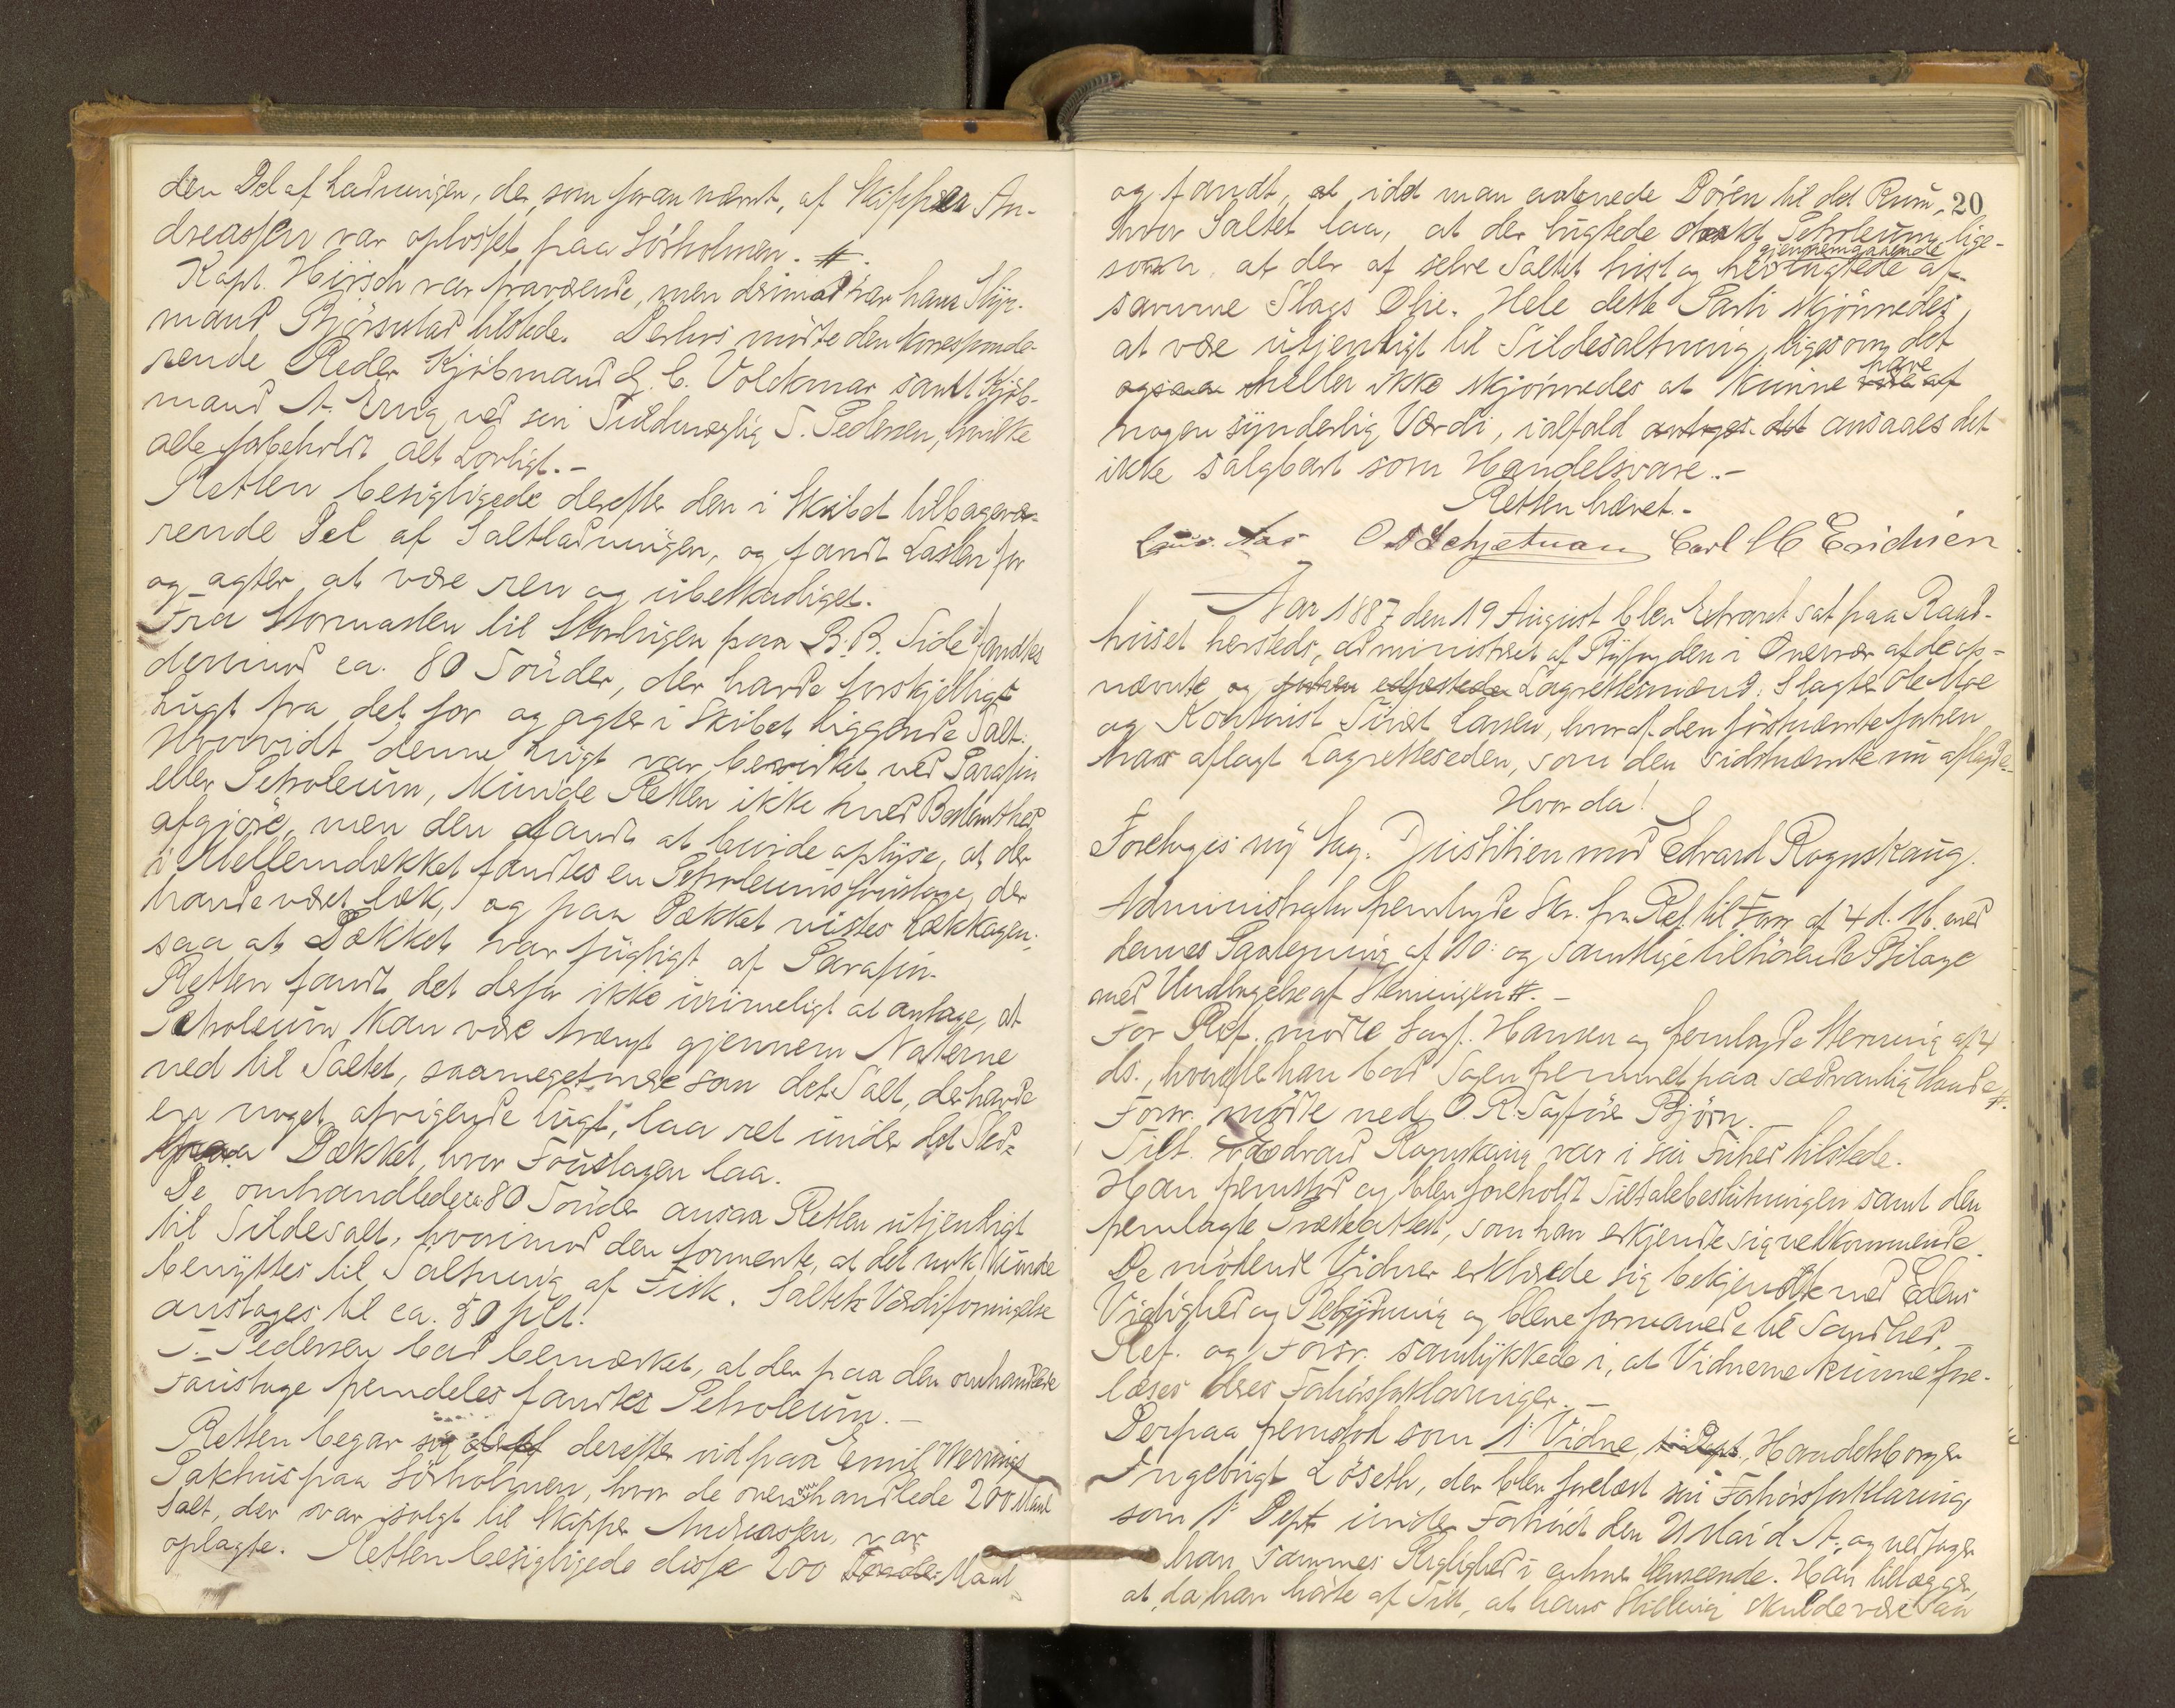 den Del af Ladningen, der som foran nævnt, af Skipper An-
dreassen var oplosset paa Sörholmen. #.
Kapt. Hirsch var fraværende, men derimod var hans Styr-
mand Björnstad tilstede. Derhos mödte den korresponde-
rende Reder Kjöbmand G. C. Volckmar samt Kjöb-
mand A. ved sin Fuldmægtig T. Pedersen, hvilke
alle forbeholdt alt Lovligt.-
Retten besigtigede derefter den i Skibet tilbagevæ-
rende Del af Saltladningen, og fandt Lasten for
og agter at være ren og ubeskadiget.
Fra Stormasten til Storlugen paa B.B. Side fandtes
derimod ca. 80 Tönder, der havde forskjelligt
Lugt fra det for og agter i Skibet liggende Salt.
Hvorvidt denne Lugt var bevirket ved Parafin
eller Petroleum, kunde Retten ikke med Bestemthed
afgjöre, men den fandt at burde oplyse, at der
i Mellemdækket fandtes en Petroleumsfoustage, der
havde været læk, og paa Dækket vistes Lækkagen;
saa at Dækket var fugtigt af Parafin.
Retten fandt det derfor ikke urimeligt at antage, at
Petroleum kan være trængt gjennem Naterne
ned til Saltet, saameget mere som det Salt, der havde
en noget afvigende Lugt, laa ret under det Sted
paa Dækket, hvor Foustagen laa.
De omhandlede ca. 80 Tönder ansaa Retten utjenligt
til Sildesalt, hvorimod den formente, at det nok kunde
benyttes til Saltning af Fisk. Saltets Værdiforringelse
anslages til ca. 50 pCt.
T. Pedersen bad bemærket, at der paa den omhandlede
Foustage fremdeles fandtes Petroleum.-
Retten begav sig derefter ud paa Emil Werrings
Pakhus paa Sörholmen, hvor de ovenomhandlede 200 Maal
Salt, der var solgt til Skipper Andreassen, var
oplagte. Retten besigtigede disse 200 Tönder Maal
20
og fandt, at idet man aabnede Dören til det Rum,
hvor Saltet laa, at der lugtede stærkt Petroleum, lige-
som at der af selve Saltet hist og her gjennemgaaende lugtede af
samme Slags Olie. Hele dette Parti skjönnedes
at være utjenligt til Sildesaltning, ligesom det
ogsaa heller ikke skjönnedes at kunne være have af
nogen synderlig Værdi, ialfald antages det ansaaes det
ikke salgbart som Handelsvare.-
Retten hævet.-
O. Schjetnan Carl M Erichsen
Aar 1887 den 19 August blev Extraret sat paa Raad-
huset hersteds, administreret af Byfogden i Overvær af de op-
nævnte og Lagrettesmænd: Slagter Ole Moe
og Kontorist Sivert Larsen, hvoraf den förstnævnte forhen
har aflagt Lagretteseden, som den sidstnævnte nu aflagde.
Hvor da!
Foretoges ny Sag. Justitien mod Edvard Rognskaug.
Administrator fremlagde Skr. fra Ref. til Forsv. af 4 d. M. med
dennes Paategning af 10: og samtlige tilhörende Bilage
med Undtagelse af Stevningen #.-
For Ref. mödte Sagf. Hansen og fremlagde Stevning af 4
ds., hvorefter han bad Sagen fremmet paa sædvanlig Maade #.
Forsv. mödte ved O.R.Sagförer Björn.
Tilt. Edvard Rognskaug var i sin Frihed tilstede.
Han fremstod og blev foreholdt Tiltalebeslutningen samt den
fremlagte Præsteattest, som han erkjendte sig vedkommende.
De mödende Vidner erklærede sig bekjendte med Edens
Vigtighed og Betydning og bleve formanede til Sandhed.-
Ref. og Forsv. samtykkede i, at Vidnerne kunne fore-
læses deres Forhörsforklaringer.-
Derpaa fremstod som 1' Vidne, Handelsborger
Ingebrigt Löseth, der blev forelæst sin Forhörsforklaring
som 1' Dept. under Forhöret den Mai d. A. og vedtager
han sammes Rigtighed i enhver Henseende. Han tillægger,
at da han hörte af Tilt., at hans Stilling skulde være saa